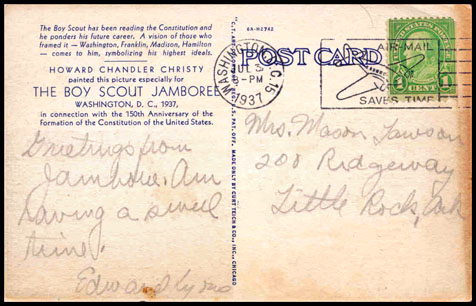 The Boy Scout has been reading the Constitution and
he ponders his future career. A vision of those who
framed it — Washington, Franklin, Madison, Hamilton
— comes to him, symbolizing his highest ideals.
HOWARD CHANDLER CHRISTY
painted this picture especially for
THE BOY SCOUT JAMBOREE
WASHINGTON, D. C., 1937,
in connection with the 150th Anniversary of the
Formation of the Constitution of the United States.
Greetings from
Jamboree. Am
having a swell
time.
Edward
REG. U. S. PAT. OFF. MADE ONLY BY CURT TEICH & CO., INC., CHICAGO
POST CARD
WASHINGTON, D.C. 15
JUL
PM
1937
AIR MAIL
SAVES TIME
1 CENT 1
Mrs. Mason Lawson
200 Ridgeway
Little Rock, Ark